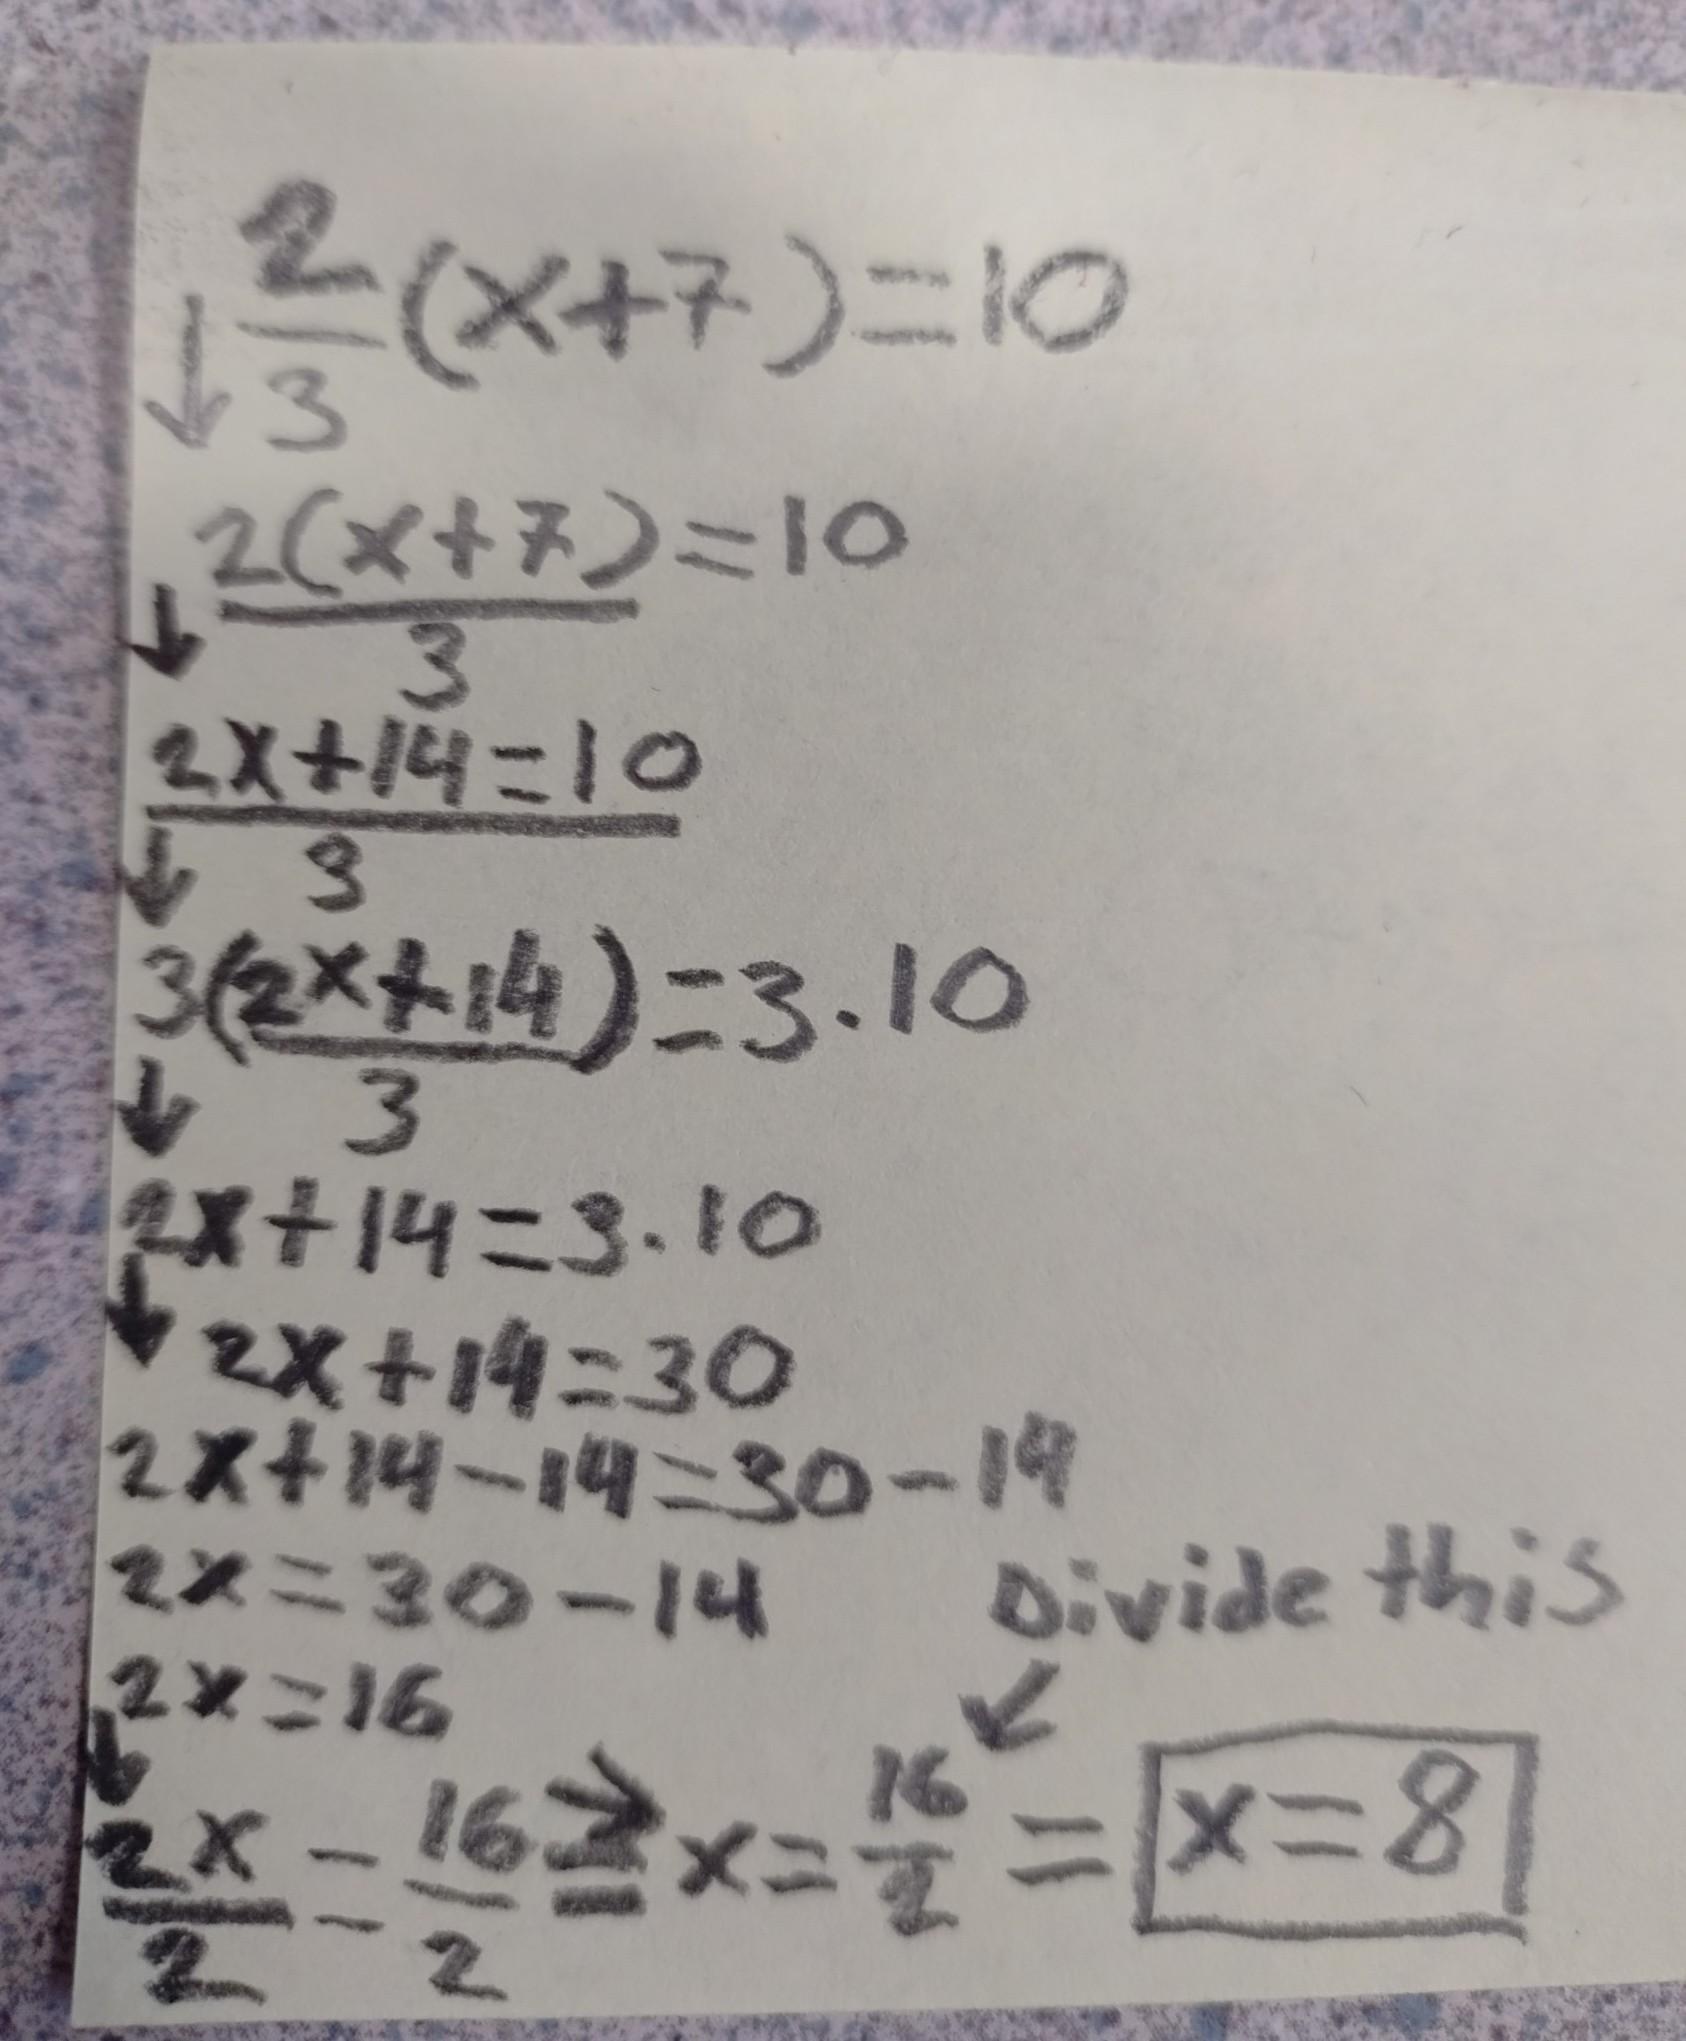 2/3 (x+7)=10
↓
2(x+7)/3 =10
↓
2x+14=10/3
↓
3(2x+14/3)=3.10
↓
2x+14=3.10
↓
2x+14=30
2x+14-14=30-14
2x=30-14
2x=16
Divide this
↓ ↙
2x/2 = 16/2 ⇒ x= 16/2 = x=8